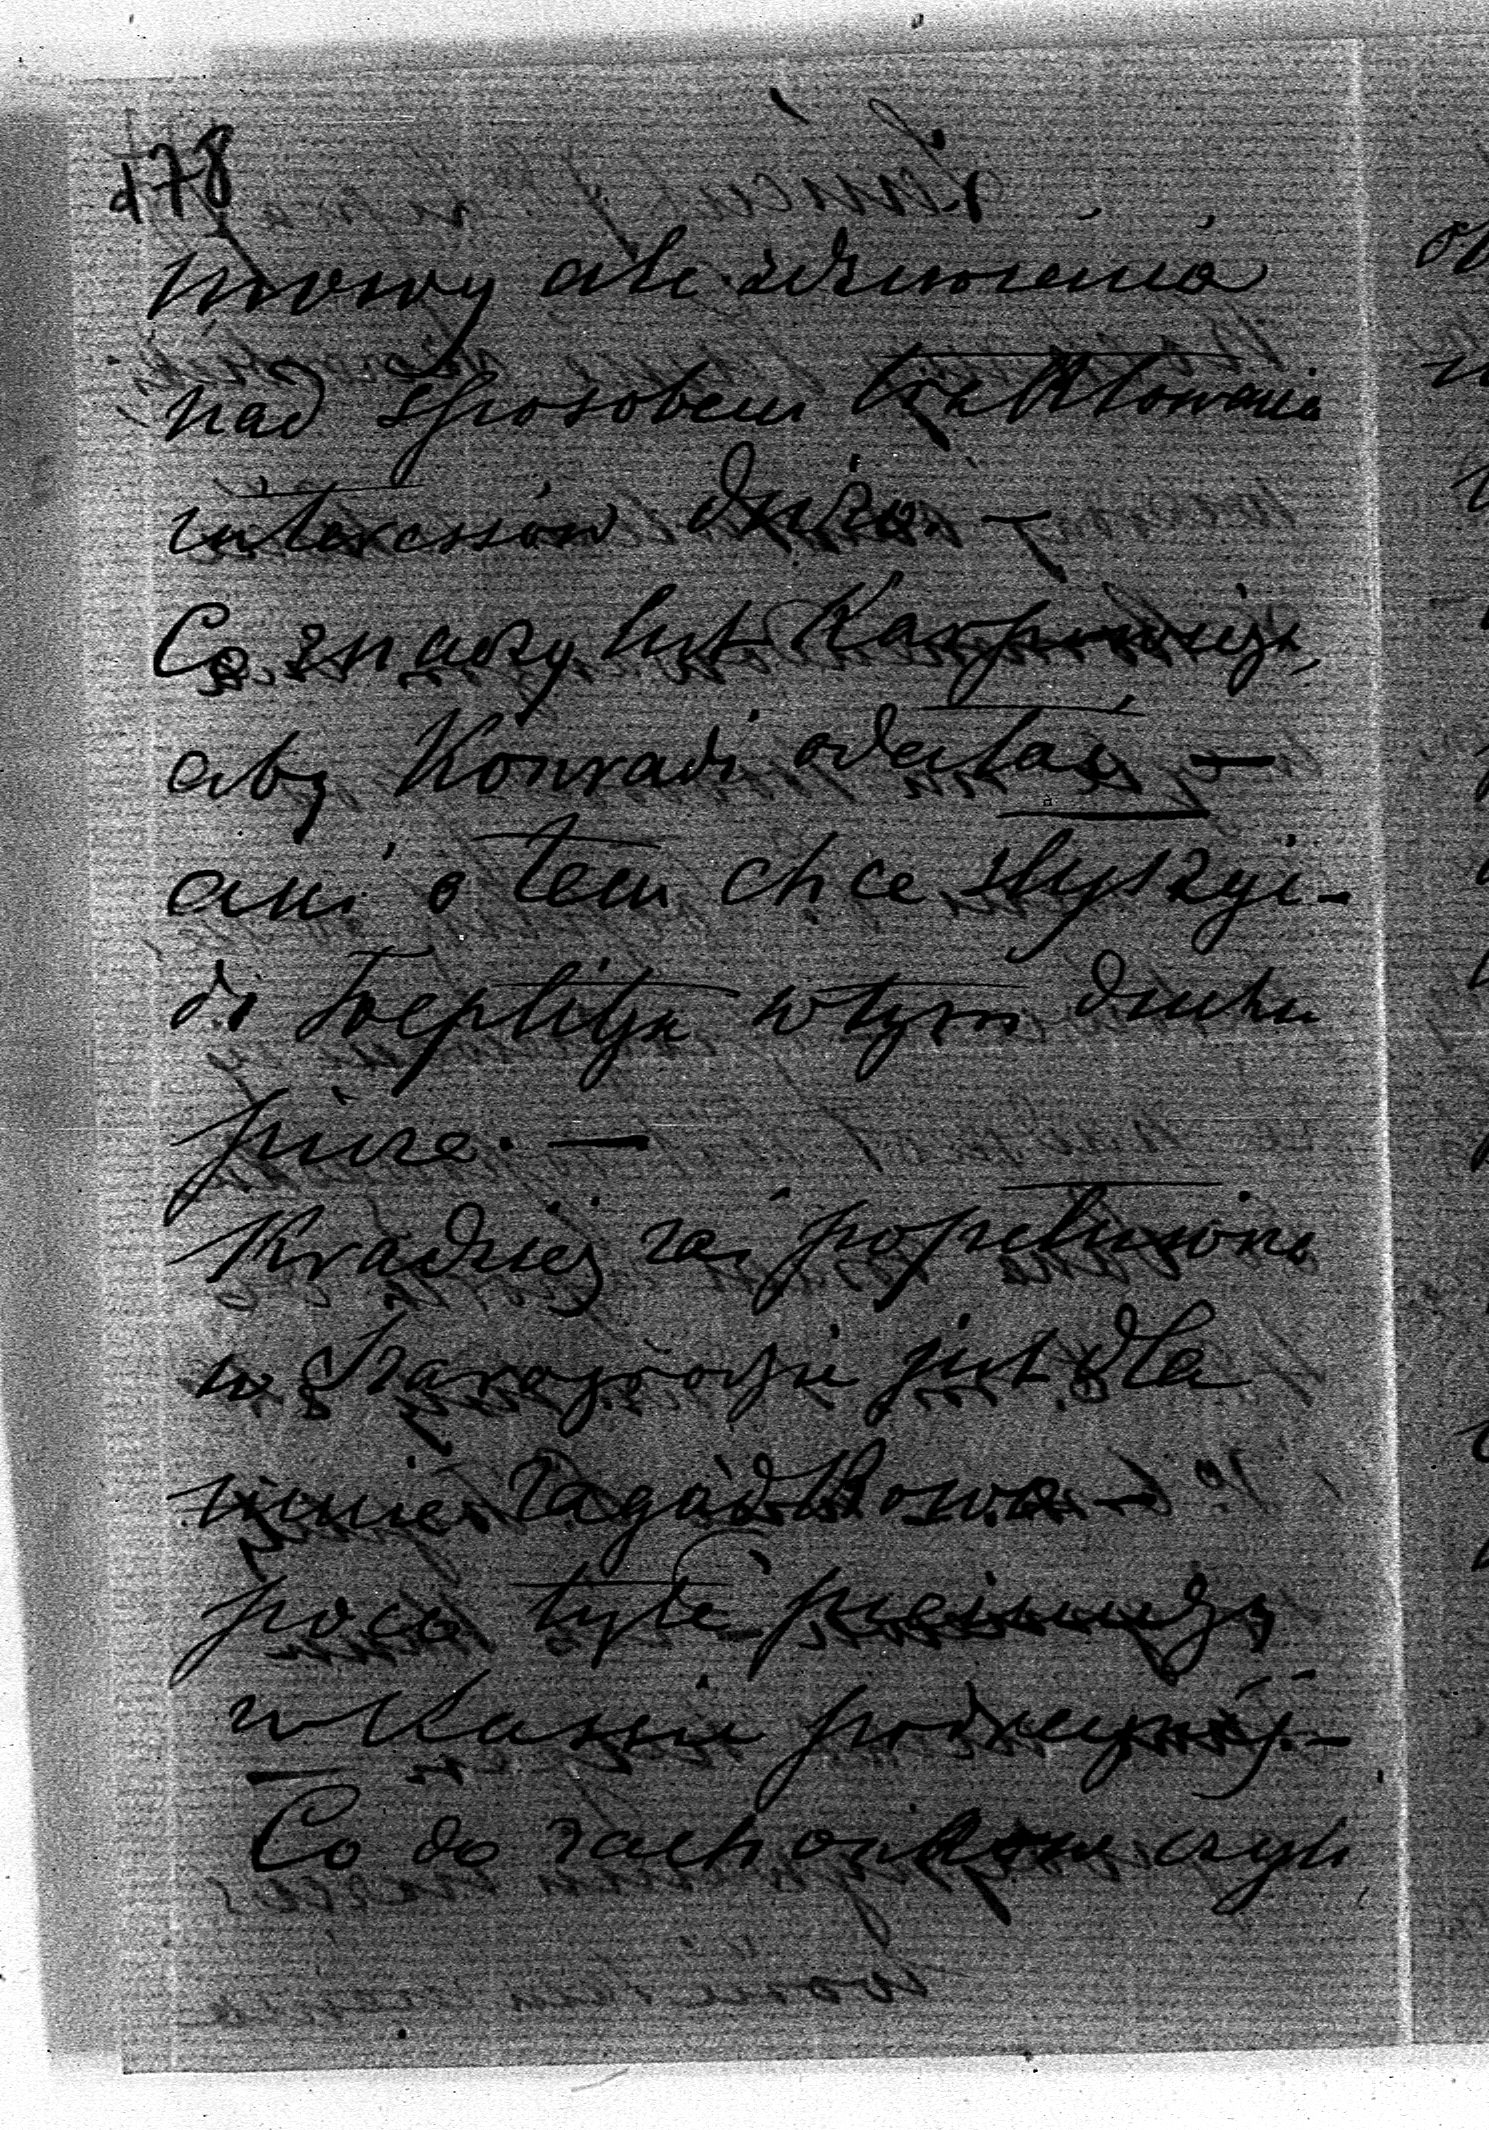 178
mowy ale zdumienia
nad sposobem traktowania
interessów
Co znaczy list
aby Konradi odestać —
ani o tem chce słyszyć —
do Toeplitza w tym duchu
pisze. —
Kradzież zaś popełniona
w Szarogrodzie jest dla
mnie zagadkowa —
poco tyle pieniędzy
w Kassie podręcznéj. —
Co do rachonków czyli